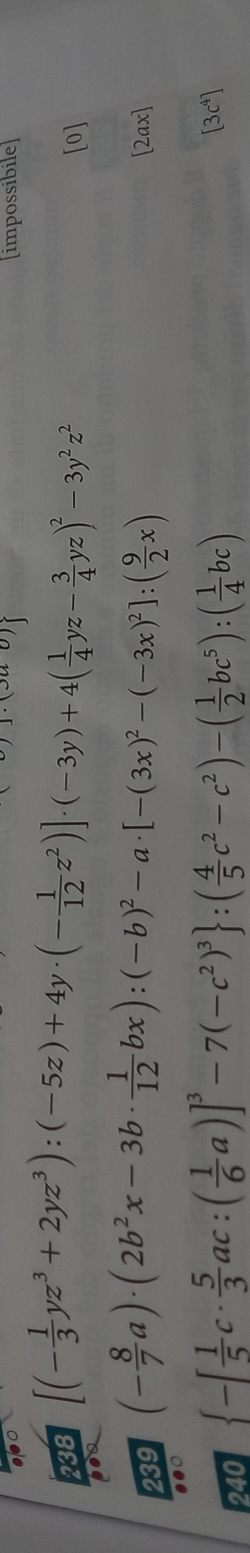 [impossibile]
238 [(-1/3 yz³ + 2yz³) : (-5z) + 4y · (-1/12 z²)] · (-3y) + 4(1/4 yz - 3/4 yz)² - 3y²z² [0]
239 (-8/7 a) · (2b²x - 3b · 1/12 bx) : (-b)² - a · [-(3x)² - (-3x)²] : (9/2 x) [2ax]
240 {-[1/5 c · 5/3 ac : (1/6 a)]³ - 7(-c²)³} : (4/5 c² - c²) - (1/2 bc⁵) : (1/4 bc) [3c⁴]